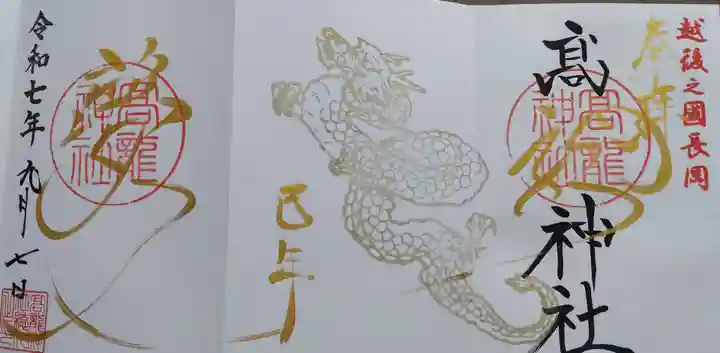 越後之國長岡
奉拝
高龍神社
高 神社
巳年
高龍神社
令和七年 九月七日